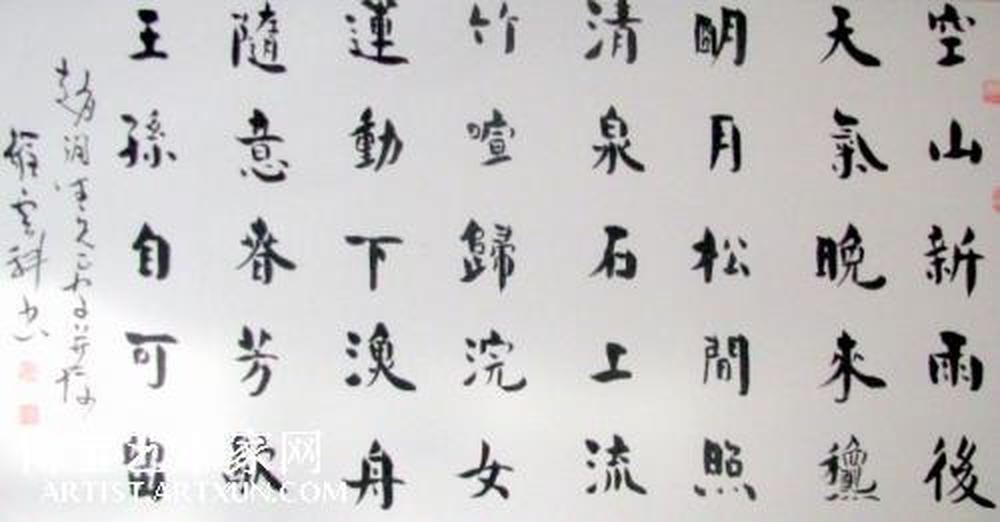 空山新雨後
天氣晚來龝
明月松間照
清泉石上流
竹喧歸浣女
蓮動下漁舟
隨意春芳歇
王孫自可留
ARTIST.ARTXUN.COM